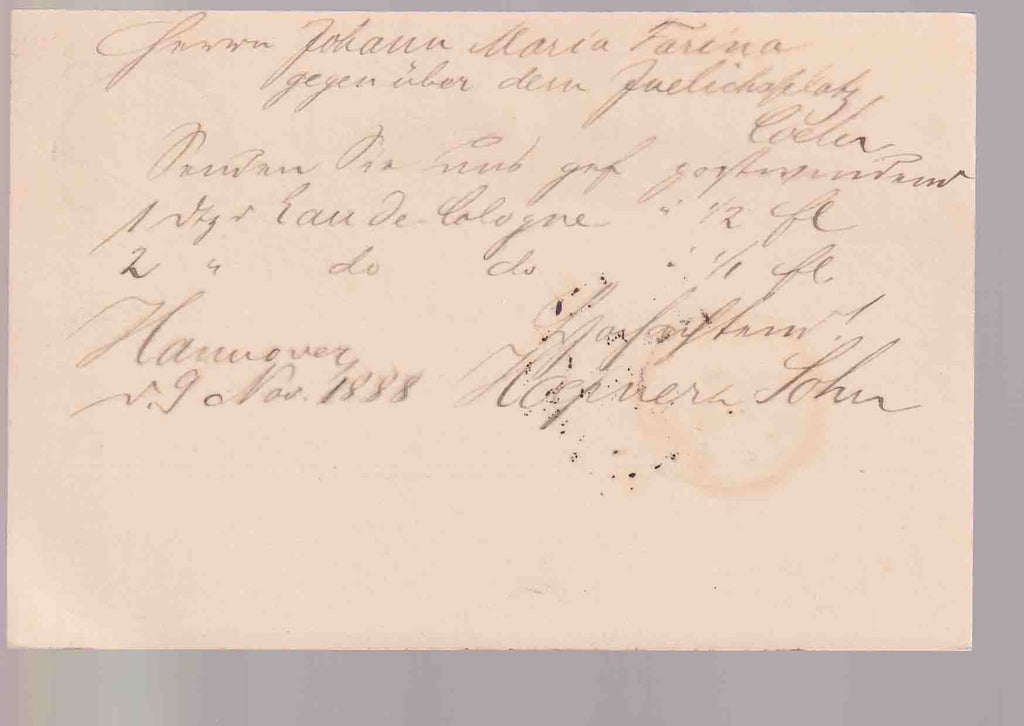 Herrn Johann Maria Farina
gegenüber dem Juelichsplatz
Coeln
Senden Sie uns gef postwendend
1 Dtzd Eau de Cologne " 1/2 fl
2 " do do " 1/1 fl.
Hannover
d. 9 Nov. 1888
Sohn